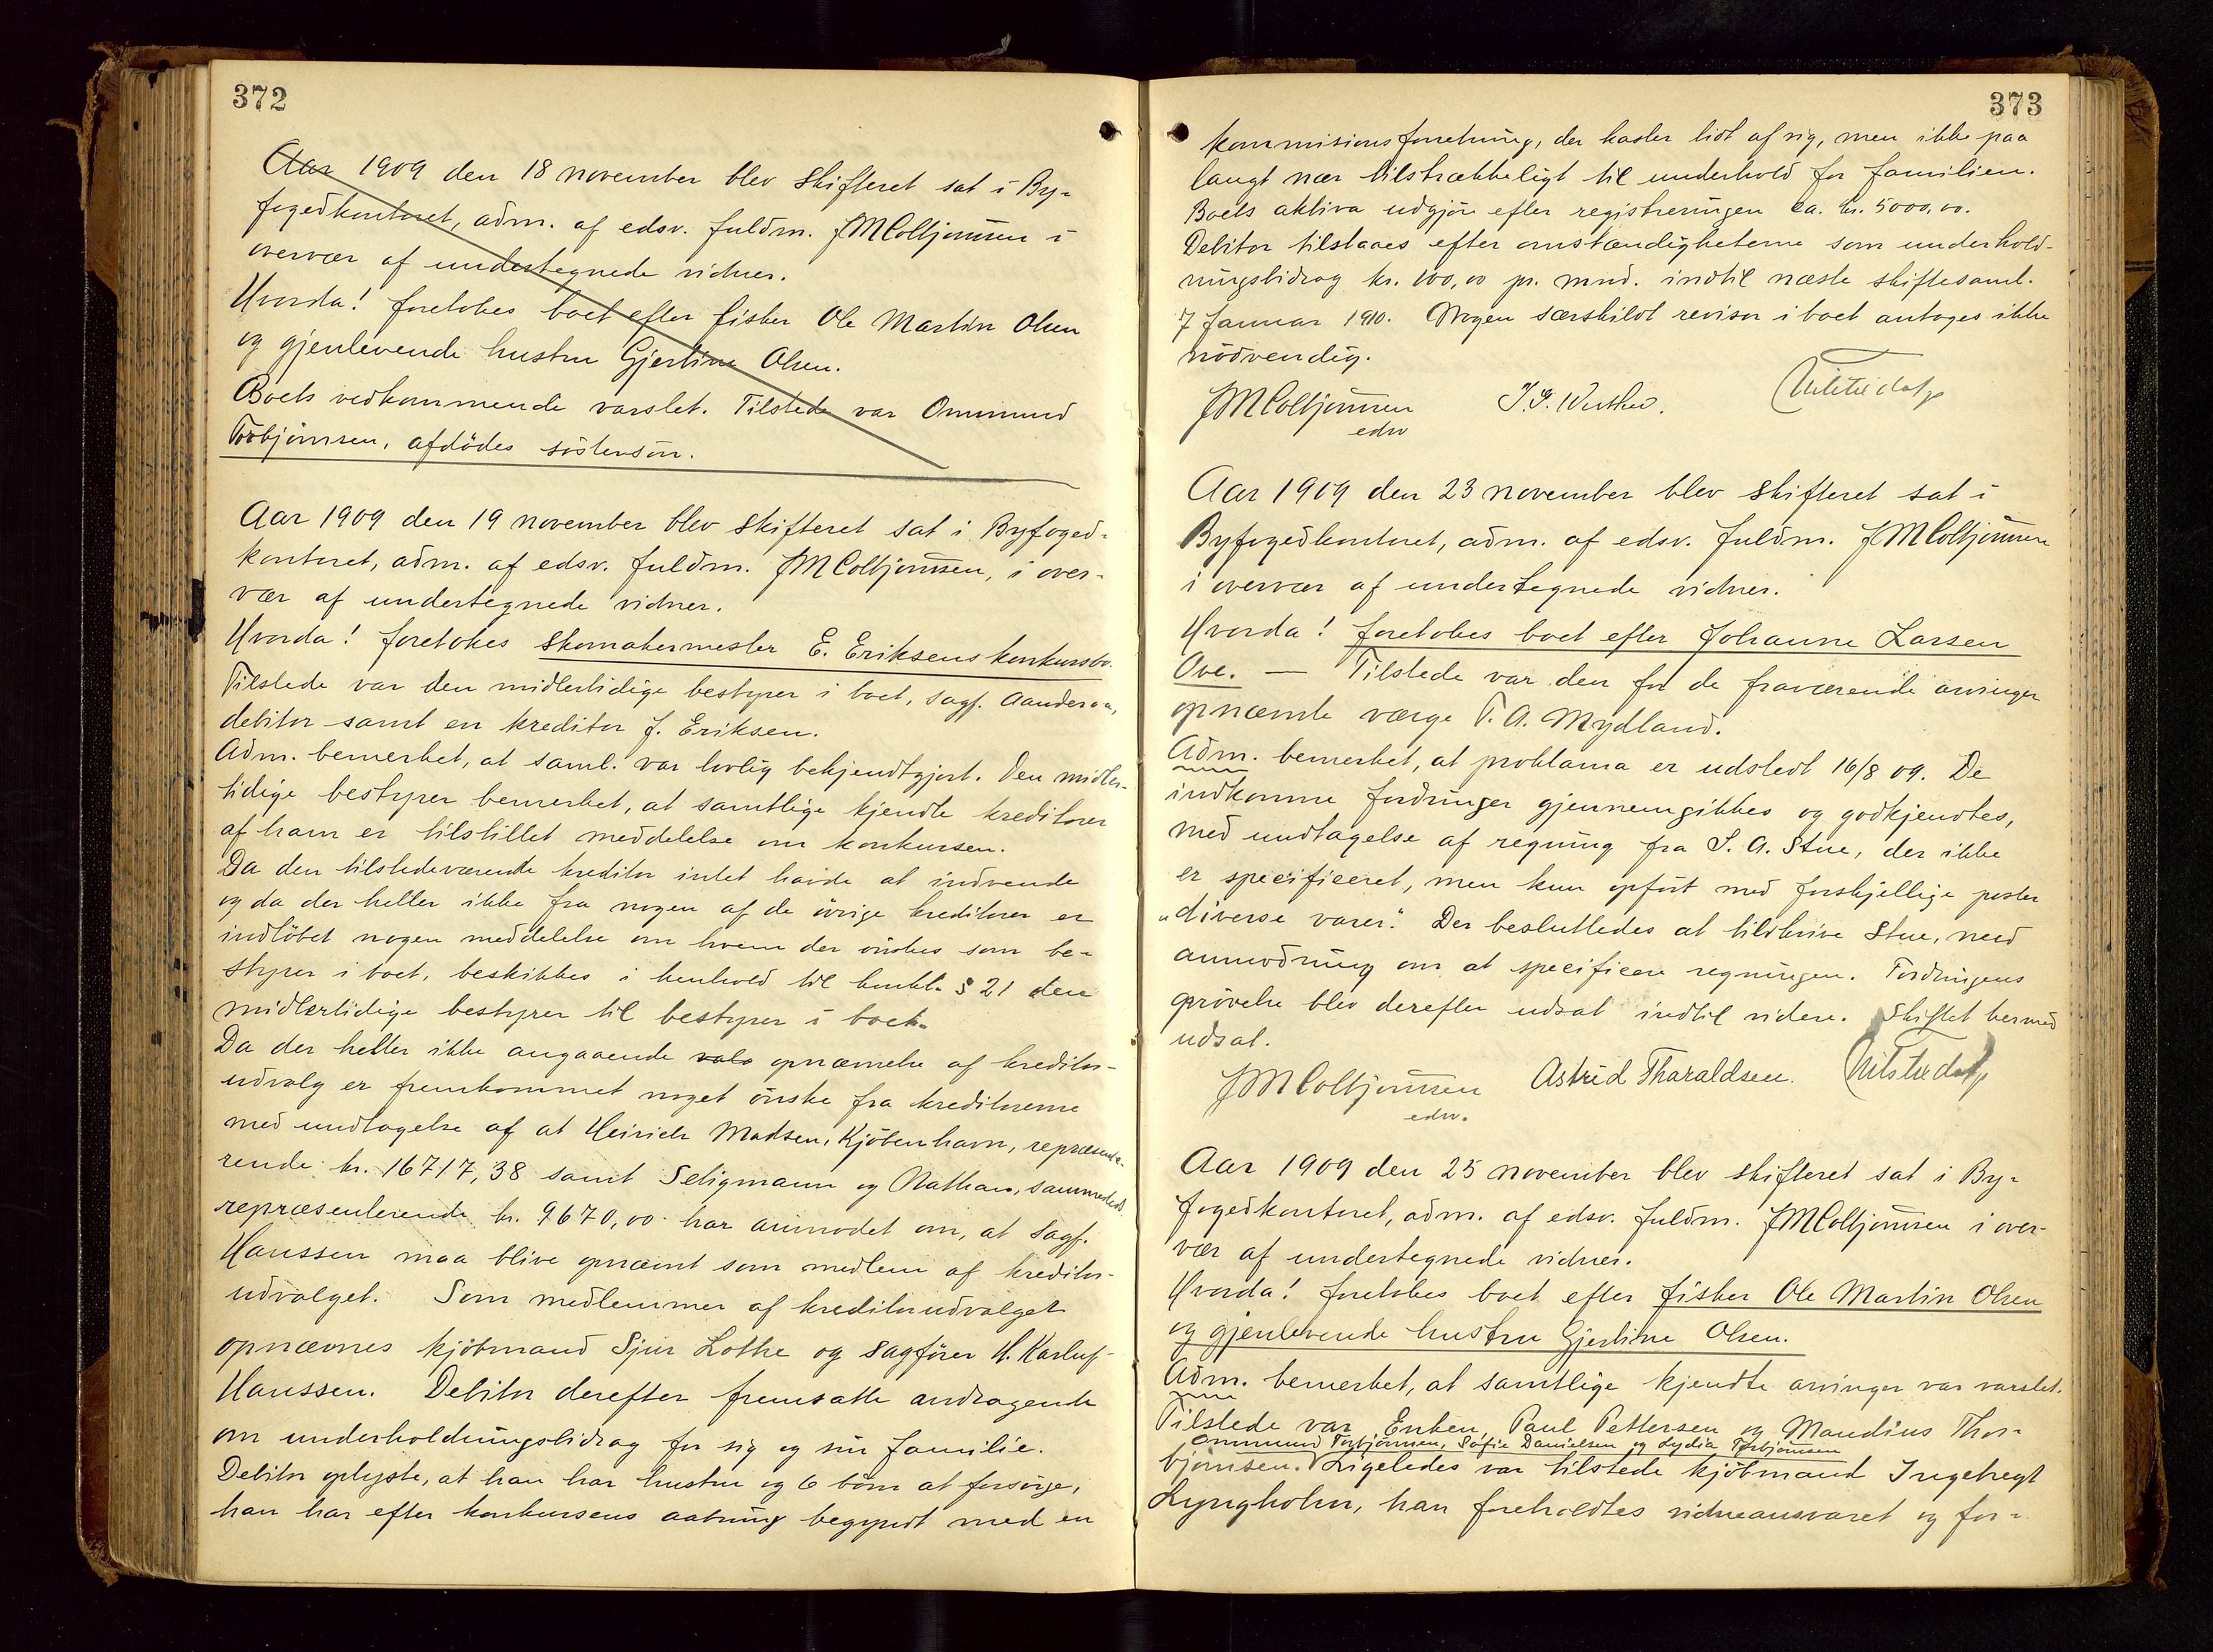 372
Aar 1909 den 18 november blev skifteret sat i By-
fogedkontoret, adm. af edsv. fuldm. JMColbjørnsen i
overvær af undertegnede vidner.
Hvorda! foretokes boet efter fisker Ole Martin Olsen
og gjenlevende hustru Gjertine Olsen.
Boets vedkommende varslet. Tilstede var Ommund
Torbjörnsen, afdödes söstersön.
Aar 1909 den 19 november blev skifteret sat i Byfoged-
kontoret, adm. af edsv. fuldm. JMColbjørnsen, i over-
vær af undertegnede vidner.
Hvorda! foretokes skomakermester E. Eriksens konkursbo.
Tilstede var den midlertidige bestyrer i boet, sagf. Aanderaa,
debitor samt en kreditor J. Eriksen.
Adm. bemerket, at saml. var lovlig bekjendtgjort. Den midler-
tidige bestyrer bemerket, at samtlige kjendte kreditorer
af ham er tilstillet meddelelse om konkursen.
Da den tilstedeværende kreditor intet havde at indvende
og da der heller ikke fra nogen af de övrige kreditorer er
indlöbet nogen meddelelse om hvem der önskes som be-
styrer i boet, beskikkes i henhold til konkl. § 21 den
midlertidige bestyrer til bestyrer i boet.
Da der heller ikke angaaende valg opnævnelse af kreditor-
udvalg er fremkommet noget önske fra kreditorerne
med undtagelse af at Heinrich Madsen, Kjöbenhavn, repræsente-
rende kr. 16717,38 samt Seligmann og Nathan, sammesteds
repræsenterende kr. 9670,00 har anmodet om, at sagf.
Hanssen maa blive opnævnt som medlem af kreditor-
udvalget. Som medlemmer af kreditorudvalget
opnævnes kjöbmand Sjur Lothe og sagförer H. Karluf-
Hanssen. Debitor derefter fremsatte andragende
om underholdningsbidrag for sig og sin familie.
Debitor oplyste, at han har hustru og 6 börn at forsörge,
han har efter konkursens aabning begyndt med en
373
kommisionsforretning, der kaster lidt af sig, men ikke paa
langt nær tilstrækkeligt til underhold for familien.
Boets aktiva udgjör efter registreringen ca. kr. 5000,00.
Debitor tilstaaes efter omstændigheterne som underhold-
ningsbidrag kr. 100,00 pr. mnd. indtil næste skiftesaml.
7 Januar 1910. Nogen særskildt revisor i boet antoges ikke
nödvendig.
JMColbjørnsen
edsv
Aar 1909 den 23 november blev skifteret sat i
Byfogedkontoret, adm. af edsv. fuldm. JMColbjørnsen
i overvær af undertegnede vidner.
Hvorda! foretokes boet efter Johanne Larsen
Ove. — Tilstede var den for de fraværende arvinger
opnævnte værge T. A. Mydland.
Adm. bemerket, at proklama er udstedt 16/8 09. De
indkomne fordringer gjennemgikkes og godkjendtes,
med undtagelse af regning fra S. A. Stue, der ikke
er specificeret, men kun opfört med forskjellige poster
„diverse varer." Der besluttedes at tilskrive Stue, med
anmodning om at specificere regningen. Fordringens
prövelse blev derefter udsat indtil videre. Skiftet hermed
udsat.
JMColbjørnsen Astrid Tharaldsen.
edsv.
Aar 1909 den 25 november blev skifteret sat i By-
fogedkontoret, adm. af edsv. fuldm. JMColbjørnsen i over-
vær af undertegnede vidner.
Hvorda! foretokes boet efter fisker Ole Martin Olsen
og gjenlevende hustru Gjertine Olsen.
Adm. bemerket, at samtlige kjendte arvinger var varslet.
Tilstede var Enken, Paul Pettersen og Maudius Thor-
Ommund Torbjörnsen, Sofie Danielsen og Lydia Torbjörnsen
björnsen. Ligeledes var tilstede kjöbmand Ingebregt
Lyngholm, han foreholdtes vidneansvaret og for-